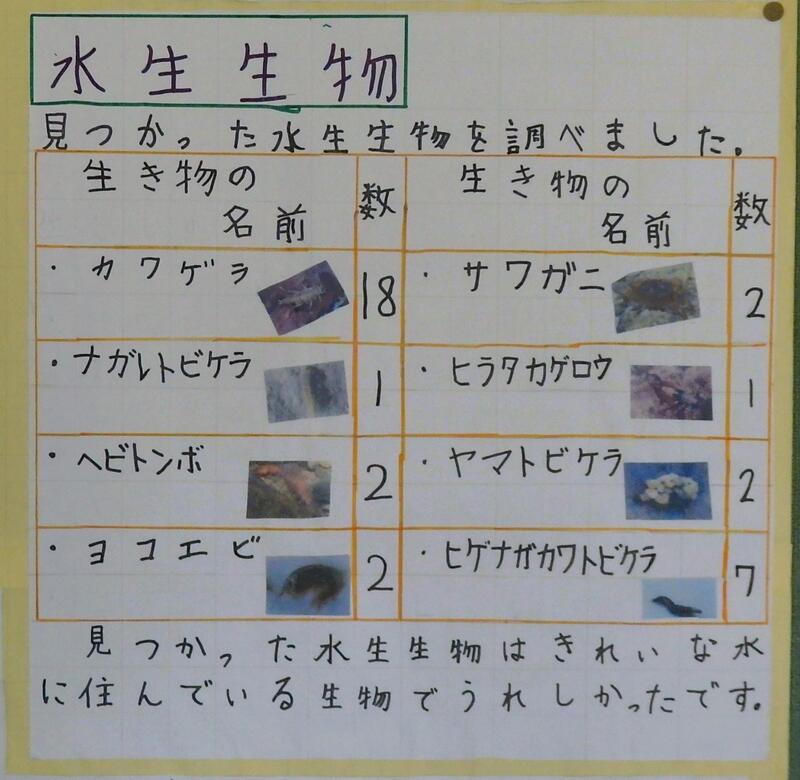 水生生物
見つかった水生生物を調べました。
生き物の
名前
数
生き物の
名前
数
・カワゲラ 18
・サワガニ 2
・ナガレトビケラ 1
・ヒラタカゲロウ 1
・ヘビトンボ 2
・ヤマトビケラ 2
・ヨコエビ 2
・ヒゲナガカワトビケラ 7
見つかった水生生物はきれいな水
に住んでいる生物でうれしかったです。